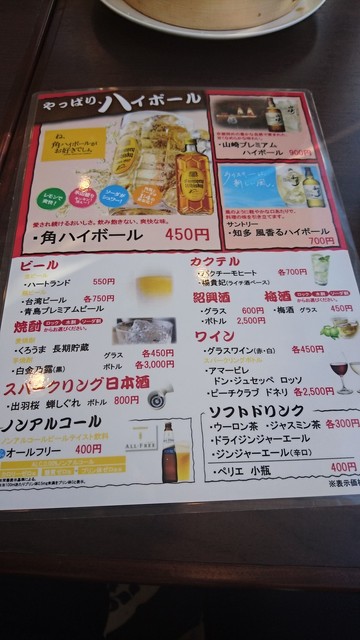 やっぱり、ハイボール
ね、
角ハイボールがお好きでしょ。
レモンで
愛され続けるおいしさ。飲み飽きない、爽快な味。
・角ハイボール 450円
・山崎プレミアム
ハイボール 900円
サントリー
・知多 風香るハイボール
700円
ビール
・ハートランド 550円
・台湾ビール 各750円
・青島プレミアムビール
焼酎 ロック 水割り ソーダ割り
からお選びください。
・くろうま 長期貯蔵 グラス 各450円
・白金乃露(黒) ボトル 各3,000円
スパークリング日本酒
・出羽桜 蝉しぐれ ボトル 800円
ノンアルコール
ノンアルコールビールテイスト飲料
・オールフリー 400円
ALL-FREE
カクテル
・パクチーモヒート 各700円
・楊貴妃(ライチ酒ベース)
紹興酒
・グラス 600円
・ボトル 2,500円
梅酒 ロック 水割り ソーダ割り
からお選びください。
・梅酒 グラス 450円
ワイン
・グラスワイン(赤・白) 各450円
スパークリングボトル
・アマービレ
ドン・ジュセッペ ロッソ
・ピーチクラブ ドネリ 各2,500円
ソフトドリンク
・ウーロン茶 ・ジャスミン茶 各300円
・ドライジンジャーエール
・ジンジャーエール(辛口)
・ペリエ 小瓶 400円
※表示価格